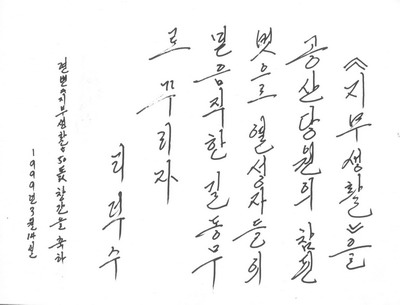 《지부생활》을
공산당원의 참된
벗으로 열성자들의
믿음직한 길동무
로 꾸리자
리덕수
연변《지부생활》50돐 창간을 축하
1999년 3월 14일